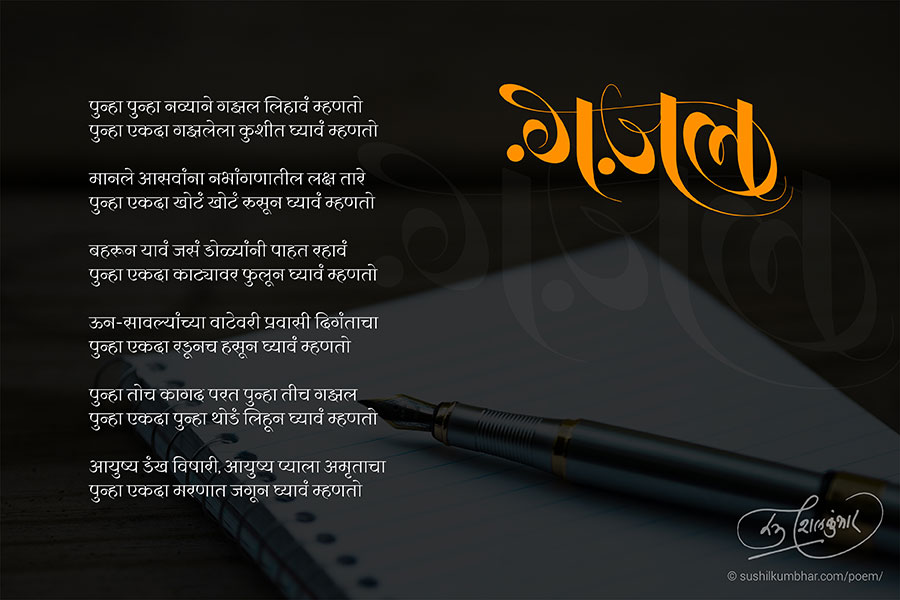 ग़ज़ल
पुन्हा पुन्हा नव्याने गझल लिहावं म्हणतो
पुन्हा एकदा गझलेला कुशीत घ्यावं म्हणतो
मानले आसवांना नभांगणातील लक्ष तारे
पुन्हा एकदा खोटं खोटं रुसून घ्यावं म्हणतो
बहरून यावं जसं डोळ्यांनी पाहत रहावं
पुन्हा एकदा काट्यावर फुलून घ्यावं म्हणतो
ऊन-सावल्यांच्या वाटेवरी प्रवासी दिगंताचा
पुन्हा एकदा रडूनच हसून घ्यावं म्हणतो
पुन्हा तोच कागद परत पुन्हा तीच गझल
पुन्हा एकदा पुन्हा थोडं लिहून घ्यावं म्हणतो
आयुष्य डंख विषारी, आयुष्य प्याला अमृताचा
पुन्हा एकदा मरणात जगून घ्यावं म्हणतो
© sushilkumbhar.com/poem/